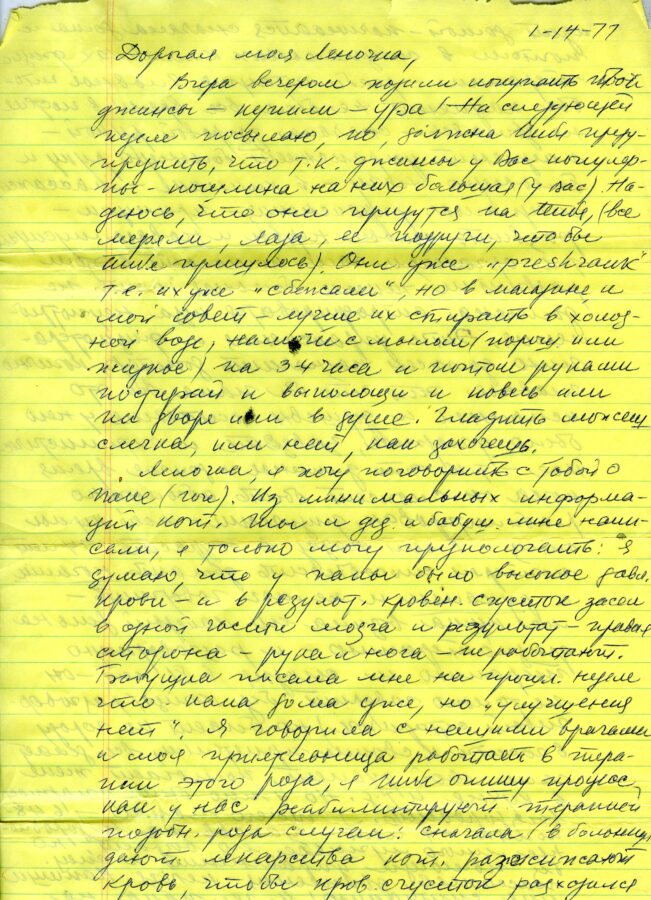 1-14-77
Дорогая моя Леночка,
Вчера вечером ходили покупать твои
джинсы – купили – ура! На следующей
неделе посылаю, но, должна тебя пред-
предить, что т.к. джинсы у Вас популяр-
ны – пошлина на них большая (у Вас). На-
деюсь, что они придутся на тебя, (все
мерели, Лаза, её подруги, чтобы
тебе пришлось). Они уже "preshrank"
т.е. их уже "сбежали", но в магазине и
мой совет – лучше их стирать в холод-
ной воде, намочи с мылом (порош или
жидкое) на 3-4 часа и потом руками
постирай и выполощи и повесь или
на дворе или в душе. Гладить можешь
слегка, или нет, как захочешь.
Леночка, я хочу поговорить с Тобой о
папе (Гоге). Из минимальных информа-
ций кот. Ты и дед. и бабуш. мне напи-
сали, я только могу предпологать: я
думаю, что у папы было высокое давл.
крови – и в результ. кровен. сгусток засел
в одной части мозга и результат – правая
сторона – рука и нога – не работают.
Бабушка писала мне на прошл. неделе
что папа дома уже, но "улучшения
нет". Я говорила с нашими врачами
и моя приятельница работает в тера-
пии этого рода, я тебе опишу процесс,
как у нас реабилитируют терапией
подобн. рода случаи: сначала (в больнице)
дают лекарства кот. разжижают
кровь, чтобы кров. сгусток разходился